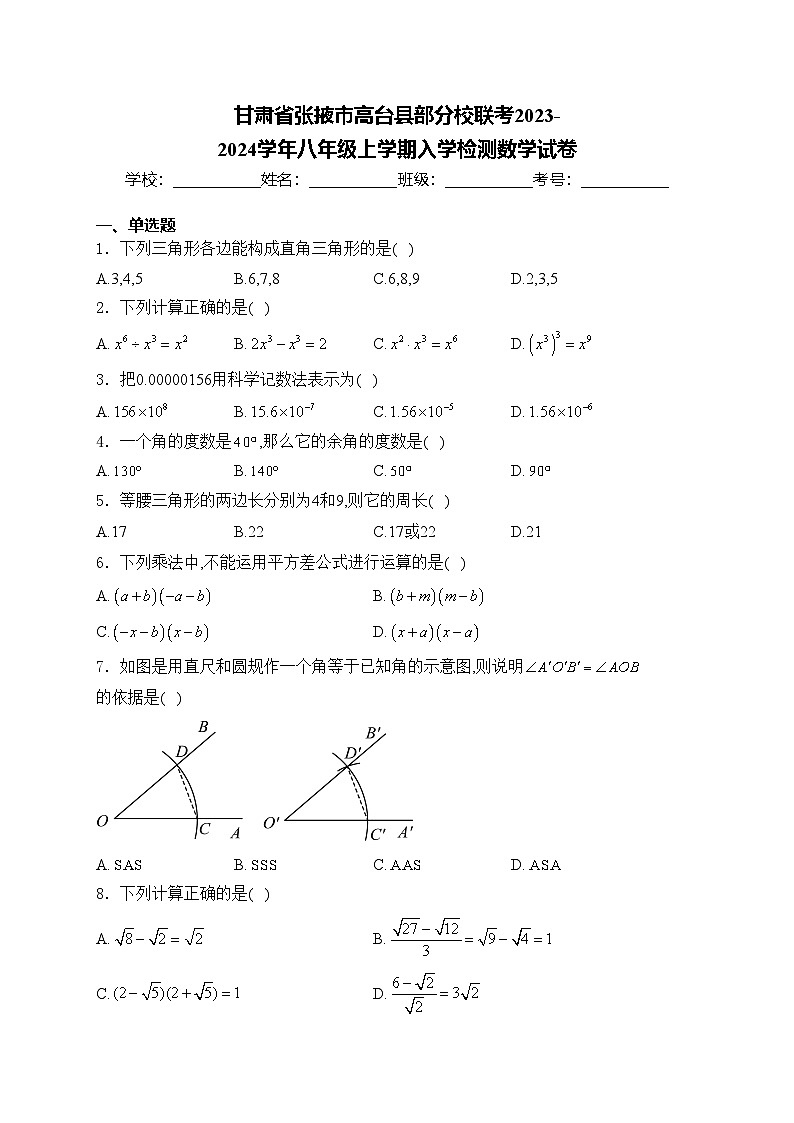 甘肃省张掖市高台县部分校联考2023-
2024学年八年级上学期入学检测数学试卷
学校：___________姓名：___________班级：___________考号：___________
一、单选题
1．下列三角形各边能构成直角三角形的是( )
A.3,4,5 B.6,7,8 C.6,8,9 D.2,3,5
2．下列计算正确的是( )
A. x⁶ ÷ x³ = x² B. 2x³ − x³ = 2 C. x² · x³ = x⁶ D. (x³)³ = x⁹
3．把0.00000156用科学记数法表示为( )
A. 156×10⁸ B. 15.6×10⁻⁷ C. 1.56×10⁻⁵ D. 1.56×10⁻⁶
4．一个角的度数是40°,那么它的余角的度数是( )
A. 130° B. 140° C. 50° D. 90°
5．等腰三角形的两边长分别为4和9,则它的周长( )
A.17 B.22 C.17或22 D.21
6．下列乘法中,不能运用平方差公式进行运算的是( )
A. (a+b)(−a−b) B. (b+m)(m−b)
C. (−x−b)(x−b) D. (x+a)(x−a)
7．如图是用直尺和圆规作一个角等于已知角的示意图,则说明∠A′O′B′=∠AOB
的依据是( )
B
D
O
C
A
B′
D′
O′
C′
A′
A. SAS B. SSS C. AAS D. ASA
8．下列计算正确的是( )
A. √8 − √2 = √2 B. (√27 − √12)/3 = √9 − √4 = 1
C. (2 − √5)(2 + √5) = 1 D. (6 − √2)/√2 = 3√2